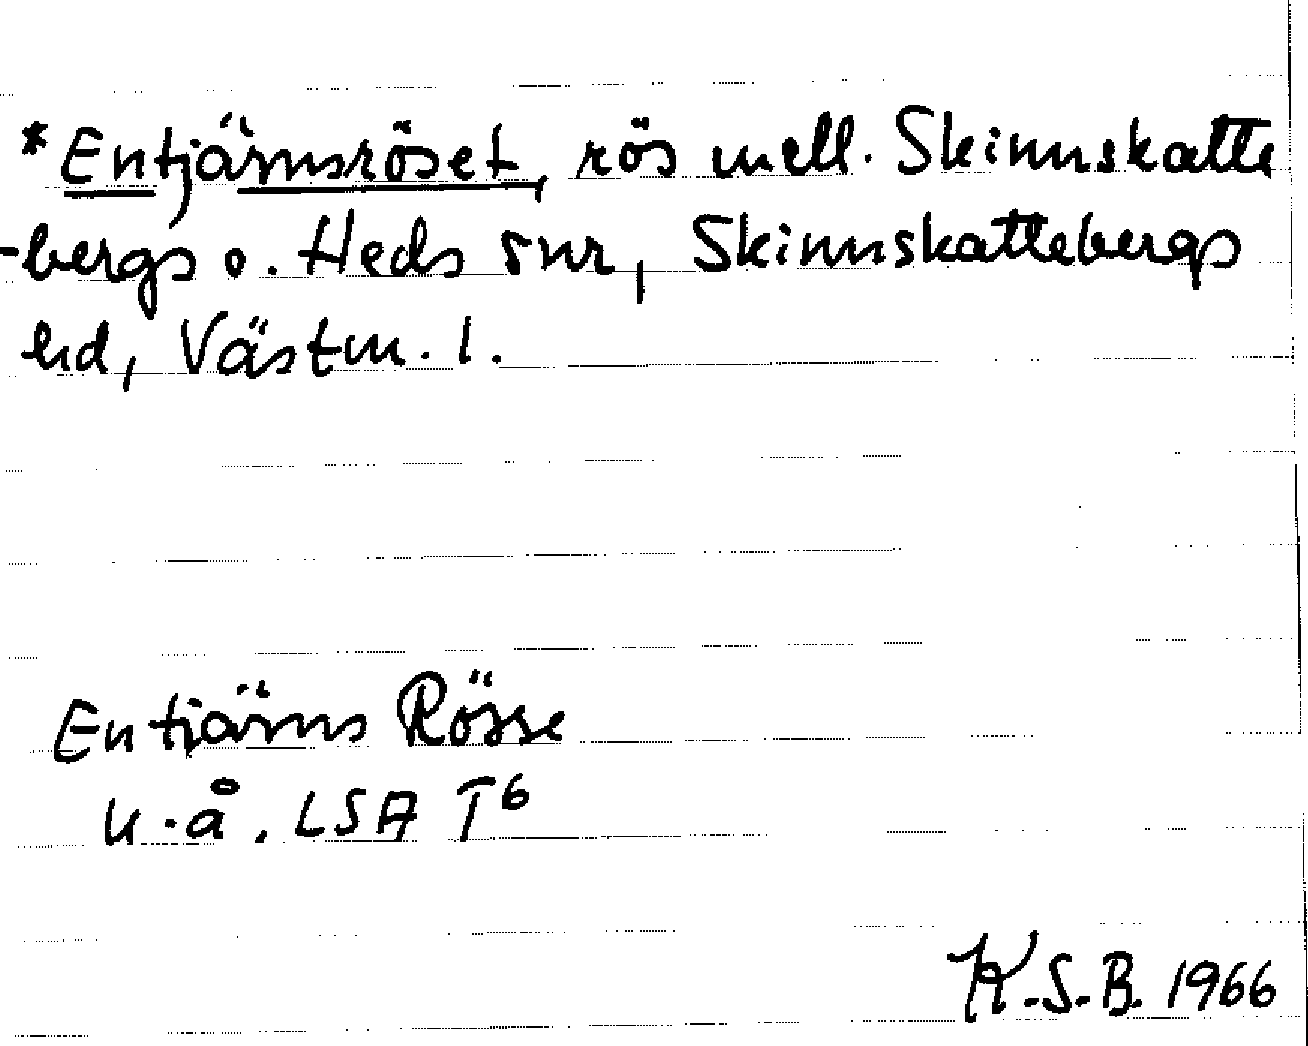 *Entjärnsröset, rös mell. Skinnskatte
-bergs o. Heds snr, Skinnskattebergs
hd, Västm. l.
Entjärns Rösse
u.å. LSA T6
K.S.B. 1966